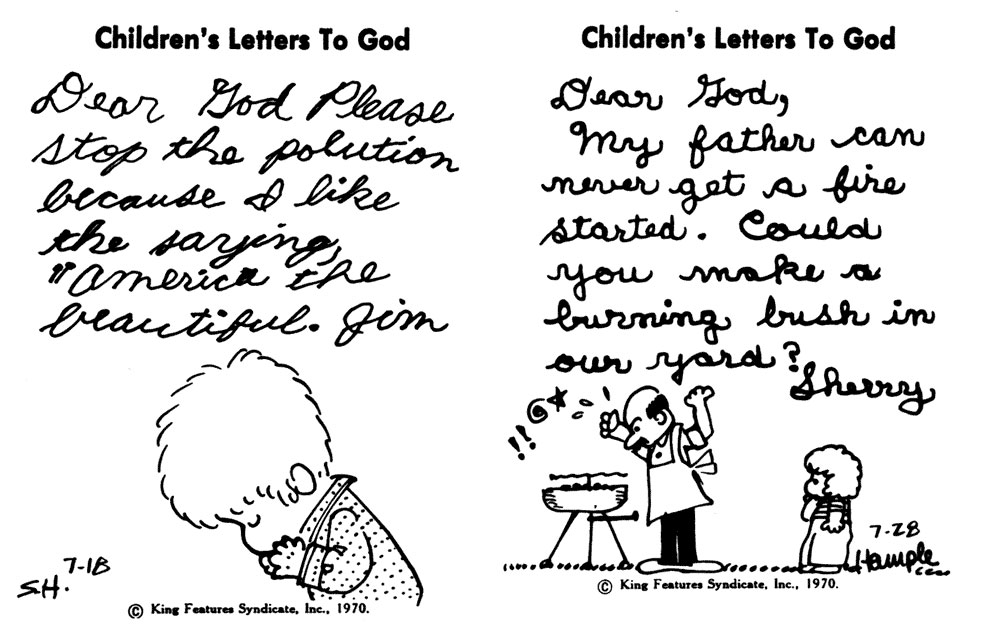 Children's Letters To God
Dear God Please
stop the polution
because I like
the saying,
"America the
beautiful. Jim
S.H. 7-18
© King Features Syndicate, Inc., 1970.
Children's Letters To God
Dear God,
My father can
never get a fire
started. Could
you make a
burning bush in
our yard?
Sherry
!! @ *
7-28
Hample
© King Features Syndicate, Inc., 1970.